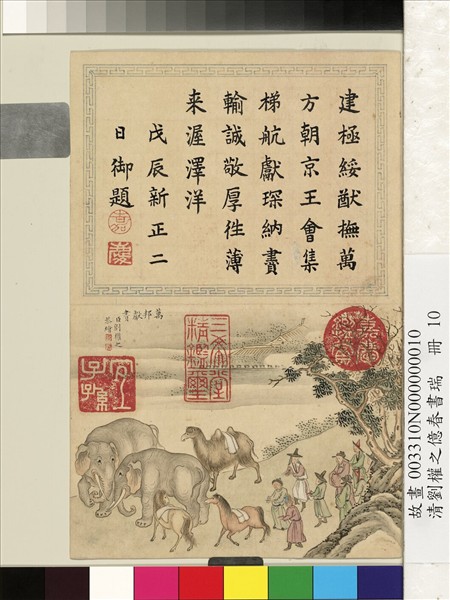 建極綏猷撫萬
方朝京王會集
梯航獻琛納賮
輸誠敬厚徃薄
来渥澤洋
戊辰新正二
日御題
嘉
慶
嘉慶鑑賞
三希堂
精鑑璽
萬邦獻賮
臣劉權之
恭繪
宜
子孫
故畫 003310N000000010
清劉權之億春書瑞 冊 10